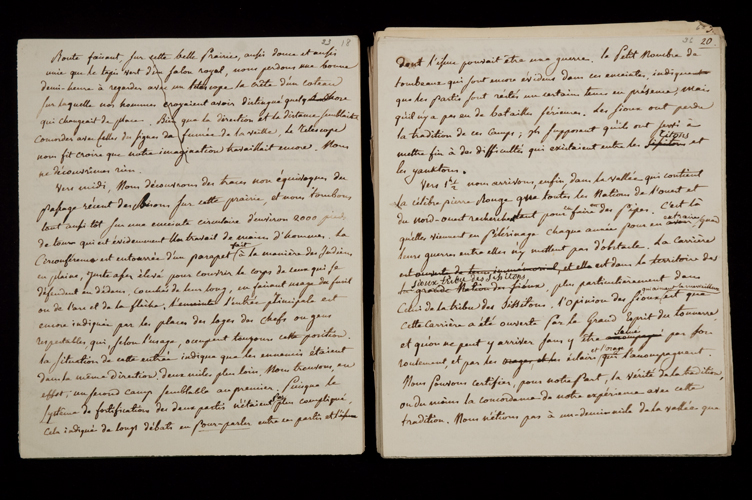 23 18
Route faisant, sur cette belle Prairie, aussi douce et aussi
unie que le tapis vert d'un Salon royal, nous perdons une bonne
demi-heure à regarder avec un telescope la crête d'un coteau
sur laquelle nos hommes croyaient avoir distingué quelque chose
qui changeait de place. Bien que la direction et la distance semblaient
Coincider avec celles du signe de fumée de la veille, le Telescope
nous fit croire que notre imagination travaillait encore. Nous
ne découvrimes rien.
Vers midi, Nous découvrons des traces non équivoques du
passage récent des Bisons sur cette prairie, et nous tombons
tout aussi tôt sur une enceinte circulaire d'environ 2000 pieds
de tour qui est évidemment un travail de mains d'hommes. La
Circonférence est entourée d'un parapet fait à la manière des Indiens
en plaine, juste assez élevé pour couvrir le corps de ceux qui se
défendent en dedans, couchés de leur long, en faisant usage du fusil
ou de l'arc et de la flèche. L'entrée principale est
encore indiquée par les places des loges des chefs ou gens
respectables, qui, selon l'usage, occupent toujours cette position.
La situation de cette entrée indique que les ennemis étaient
dans la même direction, deux milles plus loin. Nous trouvons, en
effet, un second camp semblable au premier. Puisque le
système de fortifications des deux partis n'étaient pas plus compliqué,
cela indique de longs débats en pour-parler entre ces partis et
20
dont l'issue pouvait être une guerre. Le Petit Nombre de
tombeaux qui sont encore évidens dans ces enceintes, indique
que les Partis sont restés un certain tems en présence, mais
qu'il n'y a pas eu de batailles sérieuses. Les Sioux ont perdu
la tradition de ces Camps; ils supposent qu'ils ont servi à
mettre fin à des difficultés qui existaient entre les Titons et
les yanktons.
Vers 1h 1/2 nous arrivons, enfin dans la vallée qui contient
La célèbre pierre Rouge que toutes les Nations de l'ouest et
du Nord-ouest recherchent pour en faire des Pipes. C'est là
qu'elles viennent en Pélerinage chaque année pour en extraire, quand
leurs guerres entre elles n'y mettent pas d'obstacle. La Carrière
est ouverte de tems immémorial, et elle est dans le territoire de
la grande Nation des Sioux, plus particulièrement dans
Sioux tribu des Sissitons
Celui de la tribu des Sissitons. L'opinion des Sioux est que
cette Carrière a été ouverte par le Grand Esprit du Tonnerre
et qu'on ne peut y arriver sans y être salué par son
roulement et par les orages, et les éclairs et l'orage qui l'accompagnent.
Nous pouvons certifier, pour notre part, la vérité de la tradition,
ou du moins la concordance de notre expérience avec cette
tradition. Nous n'étions pas à un demi mille de la vallée que